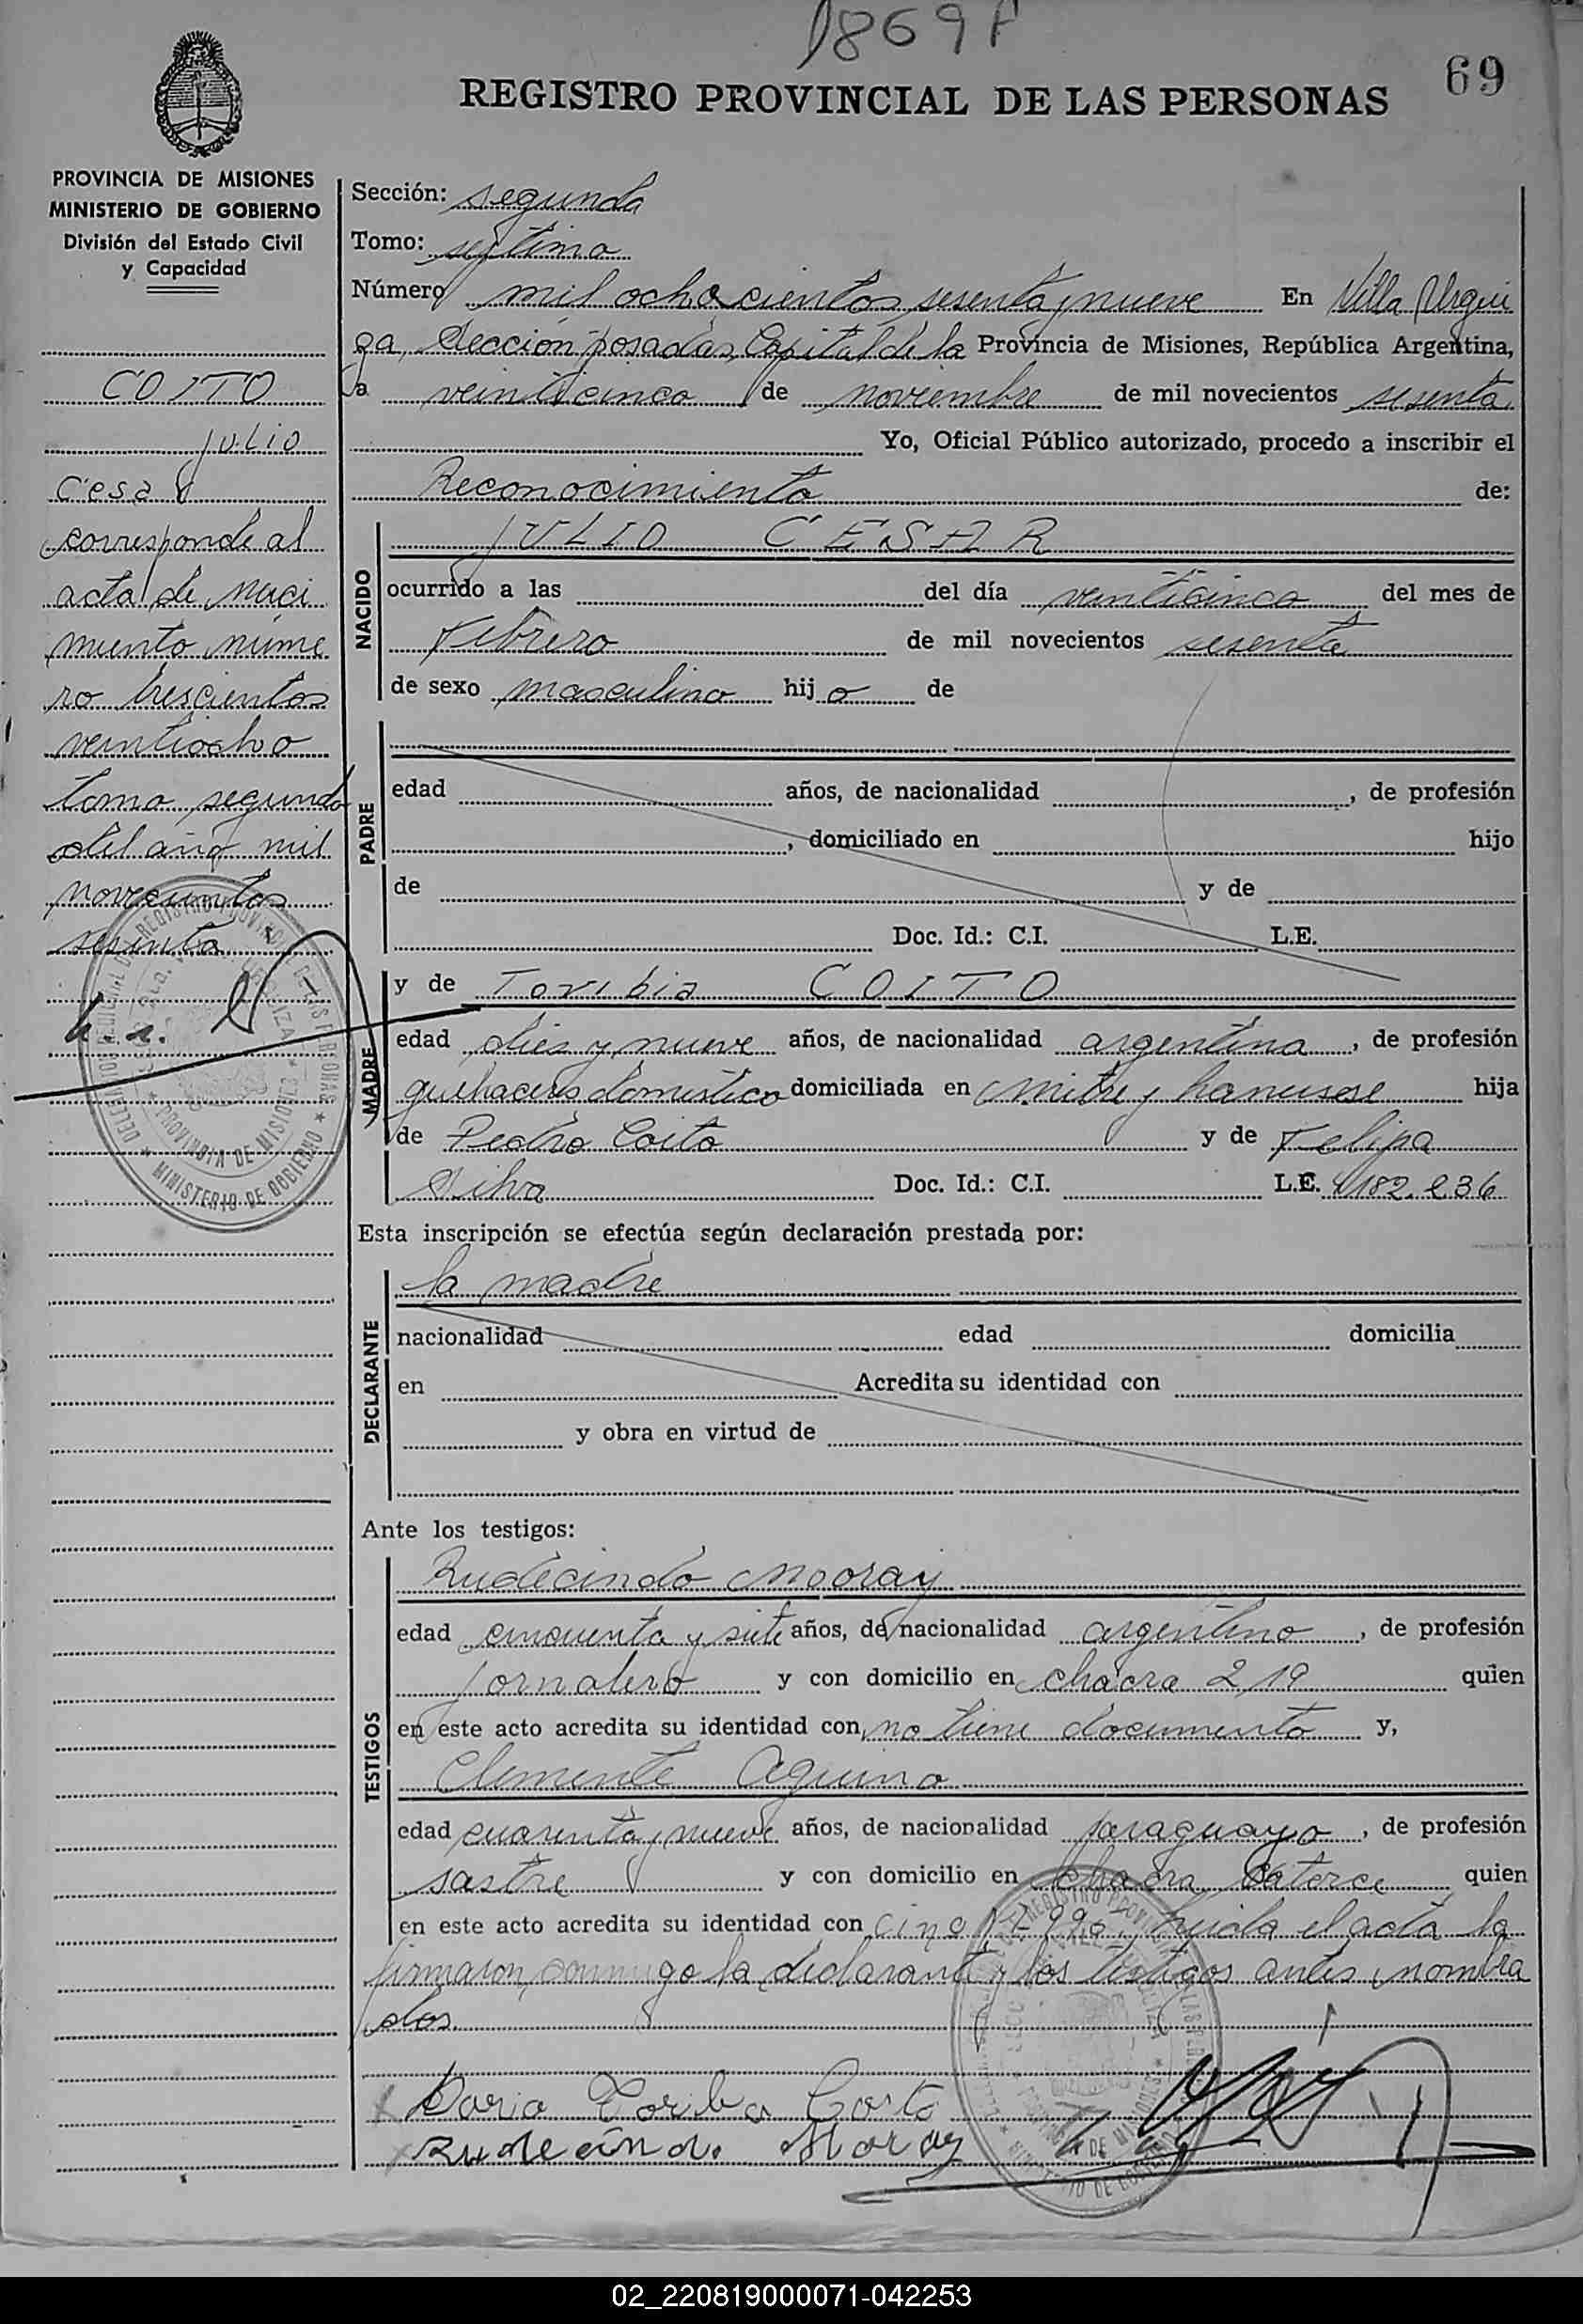 1869 F
69
REGISTRO PROVINCIAL DE LAS PERSONAS
PROVINCIA DE MISIONES
MINISTERIO DE GOBIERNO
División del Estado Civil
y Capacidad
COITO
Julio
Cesar
corresponde al
acta de naci
miento núme
ro trescientos
veintiocho
tomo segundo
del año mil
novecientos
sesenta
Sección: segunda
Tomo: septimo
Número mil ochocientos sesenta y nueve En Villa Urqui
za, Sección posadas, Capital de la Provincia de Misiones, República Argentina,
a veinticinco de noviembre de mil novecientos sesenta
Yo, Oficial Público autorizado, procedo a inscribir el
Reconocimiento de:
NACIDO
JULIO CESAR
ocurrido a las del día veinticinco del mes de
Febrero de mil novecientos sesenta
de sexo masculino hijo de
PADRE
edad años, de nacionalidad , de profesión
, domiciliado en hijo
de y de
Doc. Id.: C.I. L.E.
MADRE
y de Toribia COITO
edad dies y nueve años, de nacionalidad argentina, de profesión
quehaceres domestico domiciliada en mitre y hija
de Pedro Coito y de Felipa
Silva Doc. Id.: C.I. L.E.
Esta inscripción se efectúa según declaración prestada por:
DECLARANTE
la madre
nacionalidad edad domicilia
en Acredita su identidad con
y obra en virtud de
Ante los testigos:
TESTIGOS
Rudecindo
edad cincuenta y siete años, de nacionalidad argentino, de profesión
jornalero y con domicilio en chacra 219 quien
en este acto acredita su identidad con, no tiene documento y,
Clemente Aquino
edad cuarenta y nueve años, de nacionalidad paraguayo, de profesión
sastre y con domicilio en chacra Catorce quien
en este acto acredita su identidad con leida el acta la
firmaron conmigo la declarante y los testigos antes nombra
dos.
MINISTERIO DE GOBIERNO
PROVINCIA DE MISIONES
02_220819000071-042253